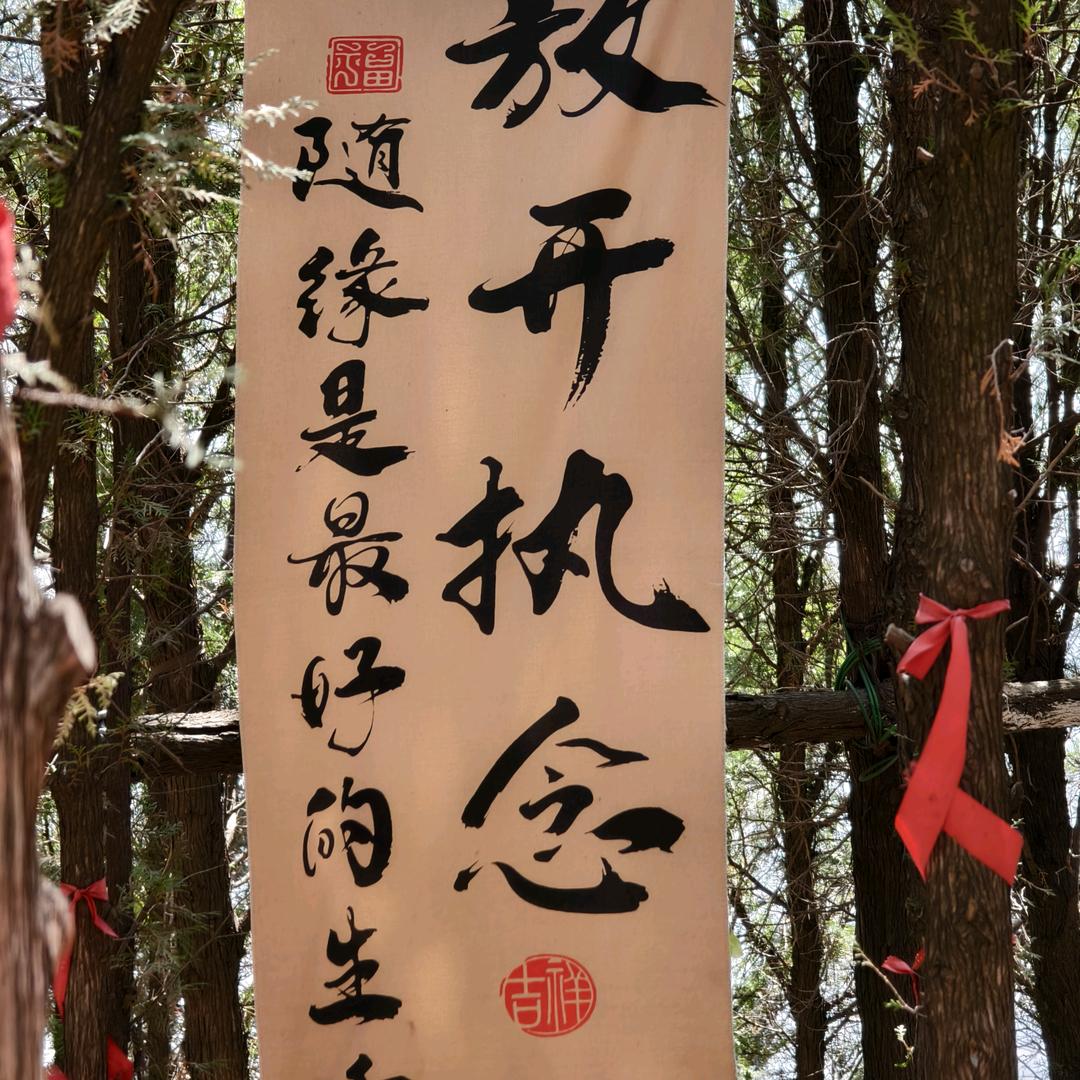 放开执念
吉祥
随缘是最好的生